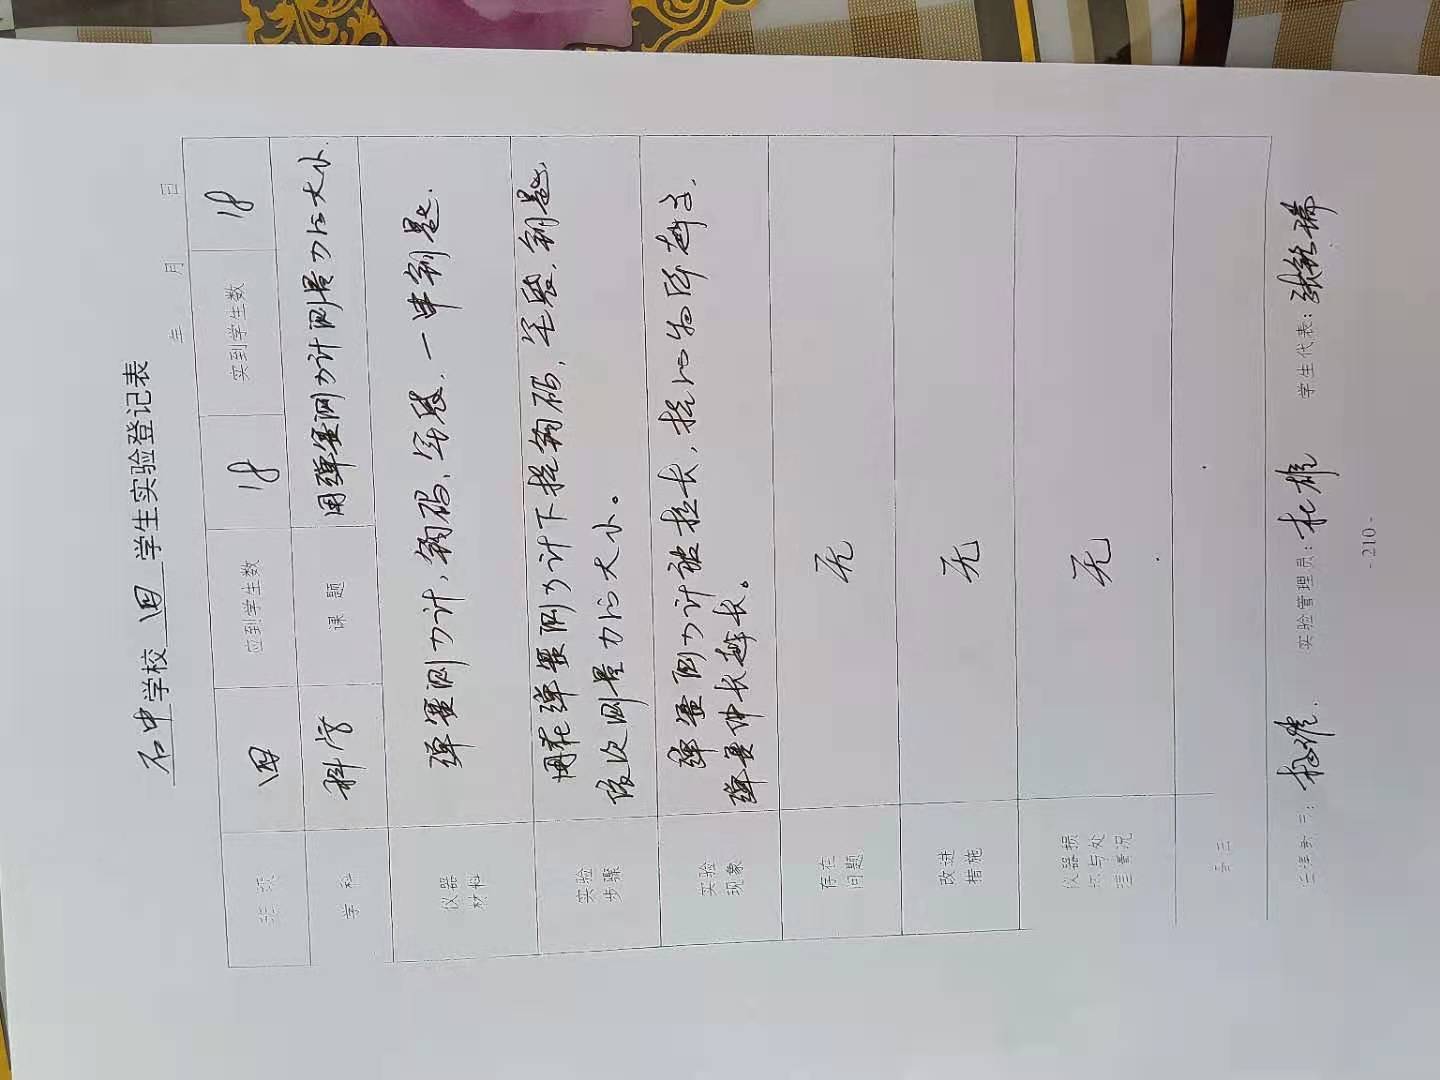 石中学校 四 学生实验登记表
年 月 日
班级 四 应到学生数 18 实到学生数 18
学科 科学 课题 用弹簧测力计测量力的大小.
仪器材料 弹簧测力计,钩码,笔袋,一串钥匙.
实验步骤 用在弹簧测力计下挂钩码,笔袋,钥匙,
依次测量力的大小。
实验现象 弹簧测力计被拉长,挂的物体越重,
弹簧伸长越长。
存在问题 无
改进措施 无
仪器损坏与处理情况 无
备注
任课教师: 实验管理员: 学生代表:
- 210 -